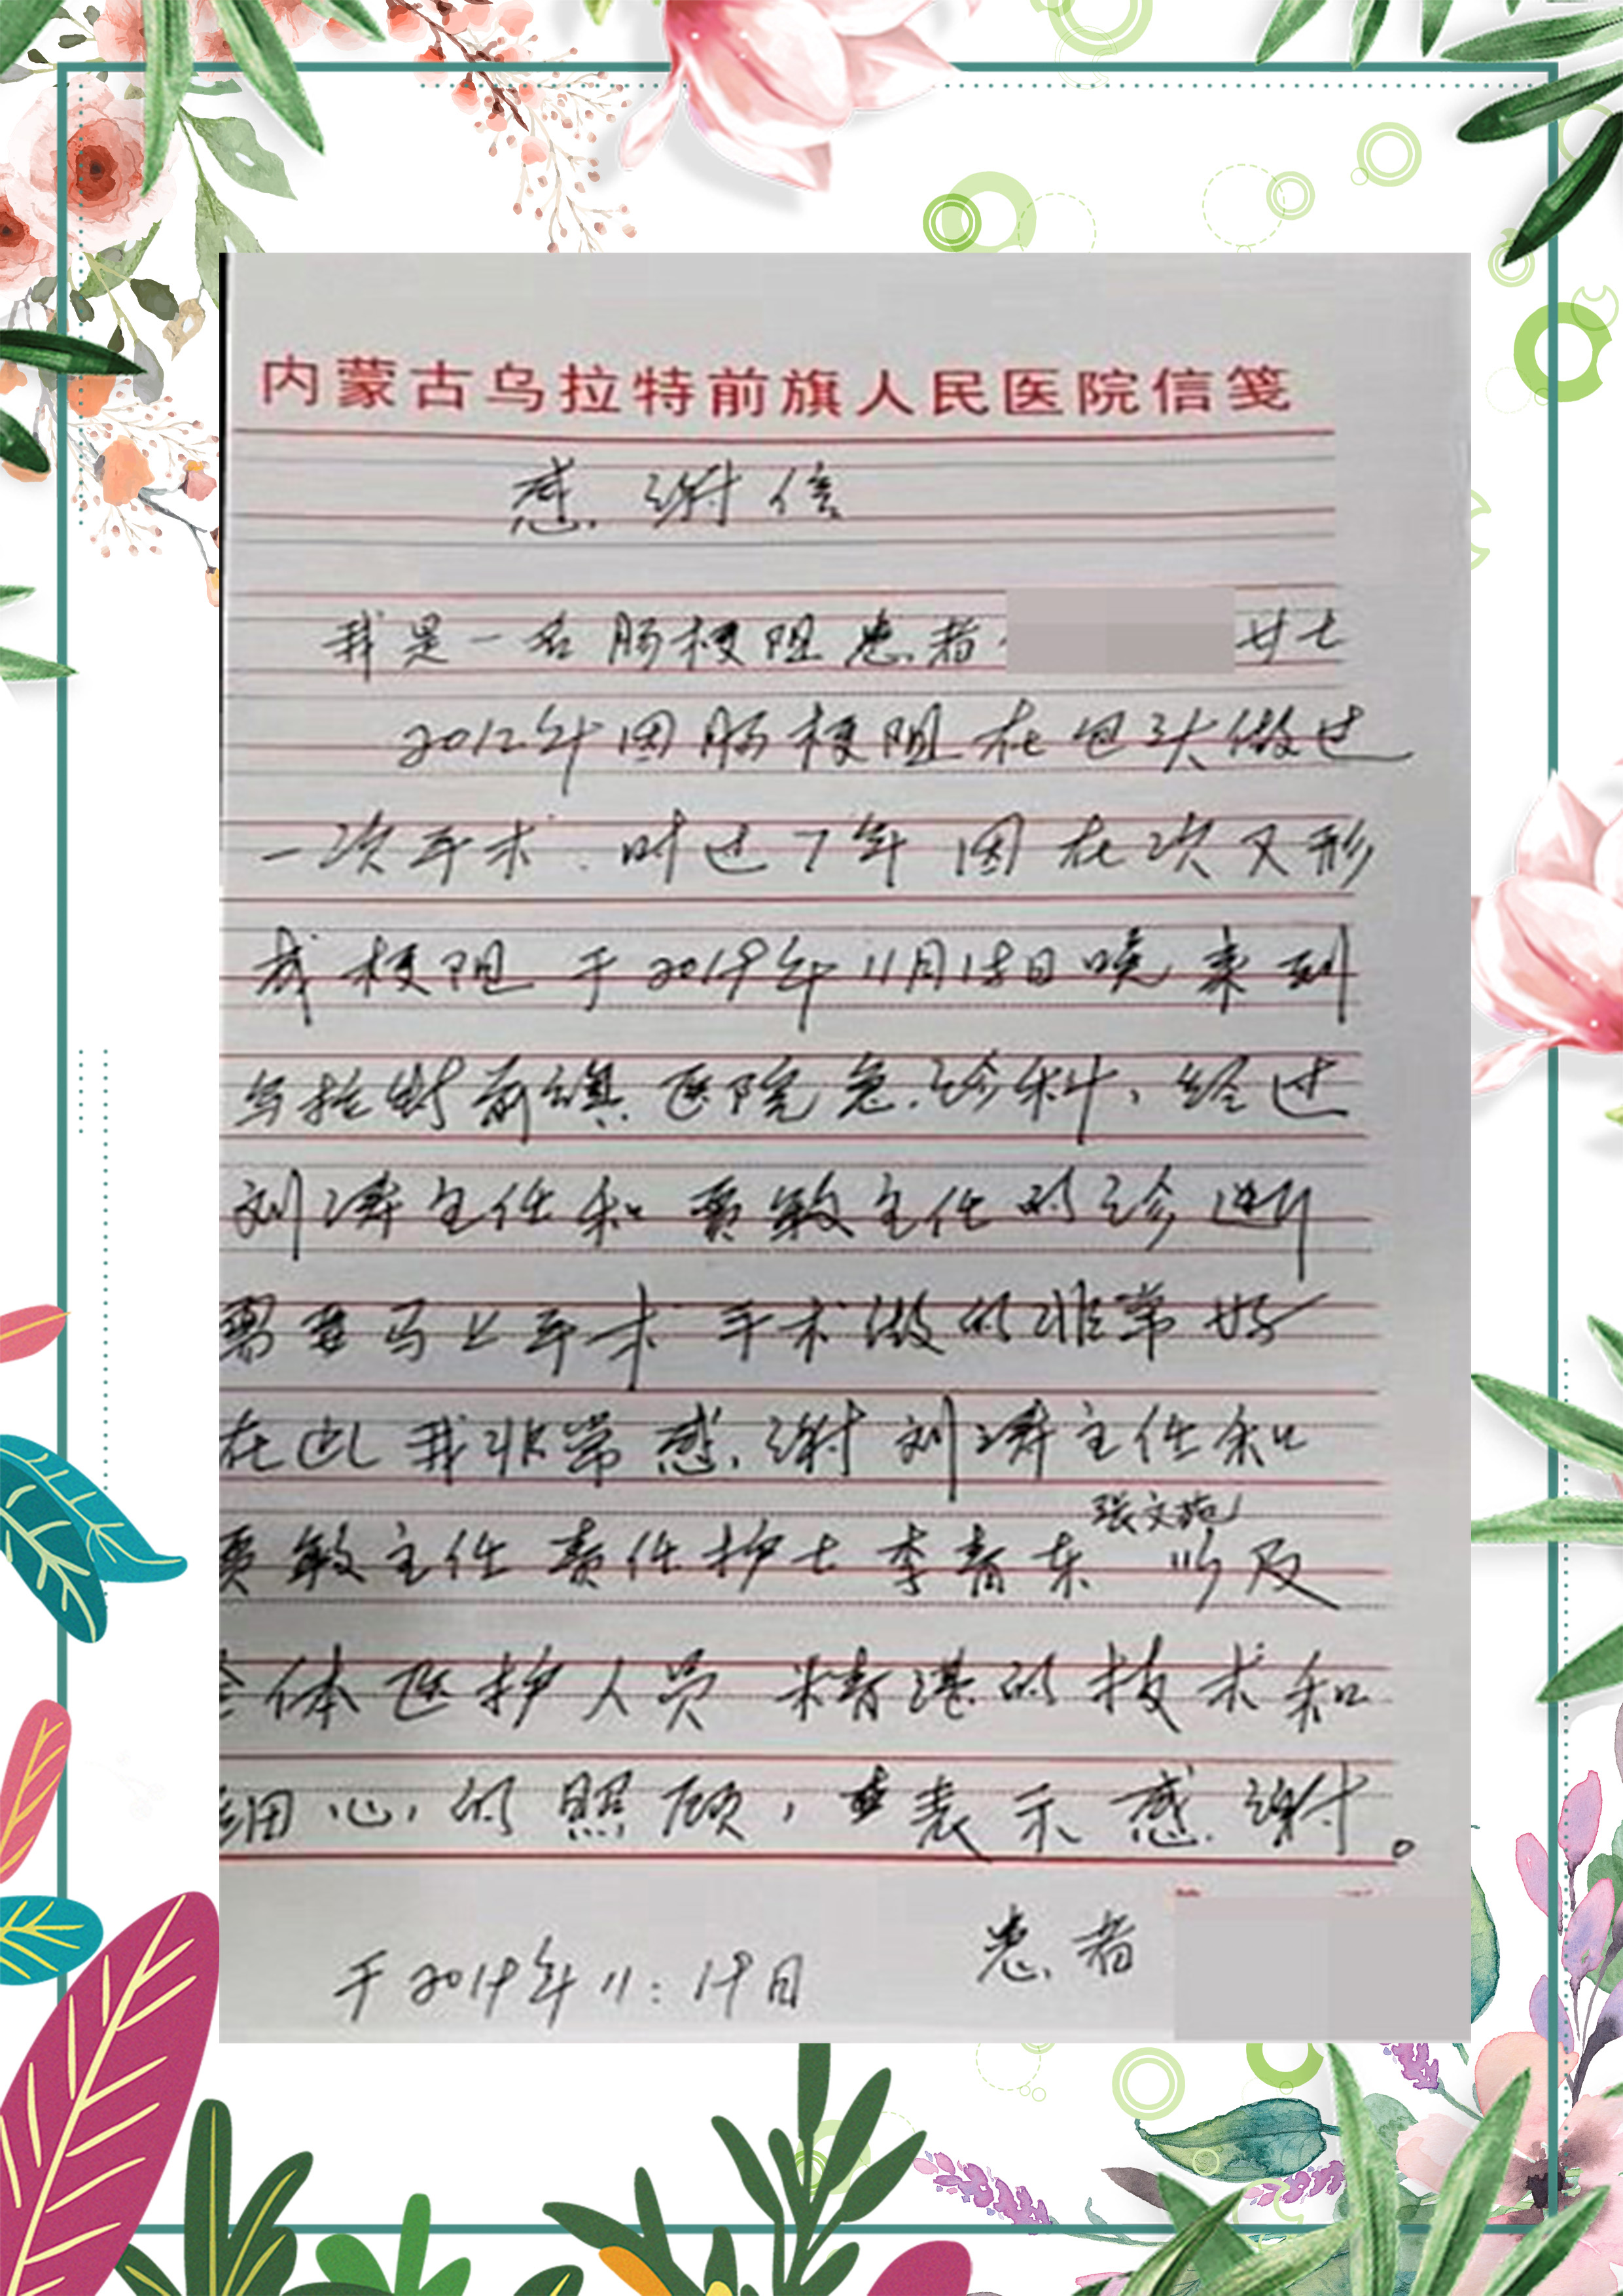 内蒙古乌拉特前旗人民医院信笺
感谢信
我是一名肠梗阻患者 女士
2012年因肠梗阻在包头做过
一次手术.时过7年因在次又形
成梗阻于2019年11月15日晚来到
乌拉特前旗医院急诊科,经过
刘涛主任和贾敏主任的诊断
需要马上手术手术做的非常好
在此我非常感谢刘涛主任和
张文施
贾敏主任责任护士李青东以及
全体医护人员精湛的技术和
细心的照顾,表示感谢。
患者
于2019年11:19日